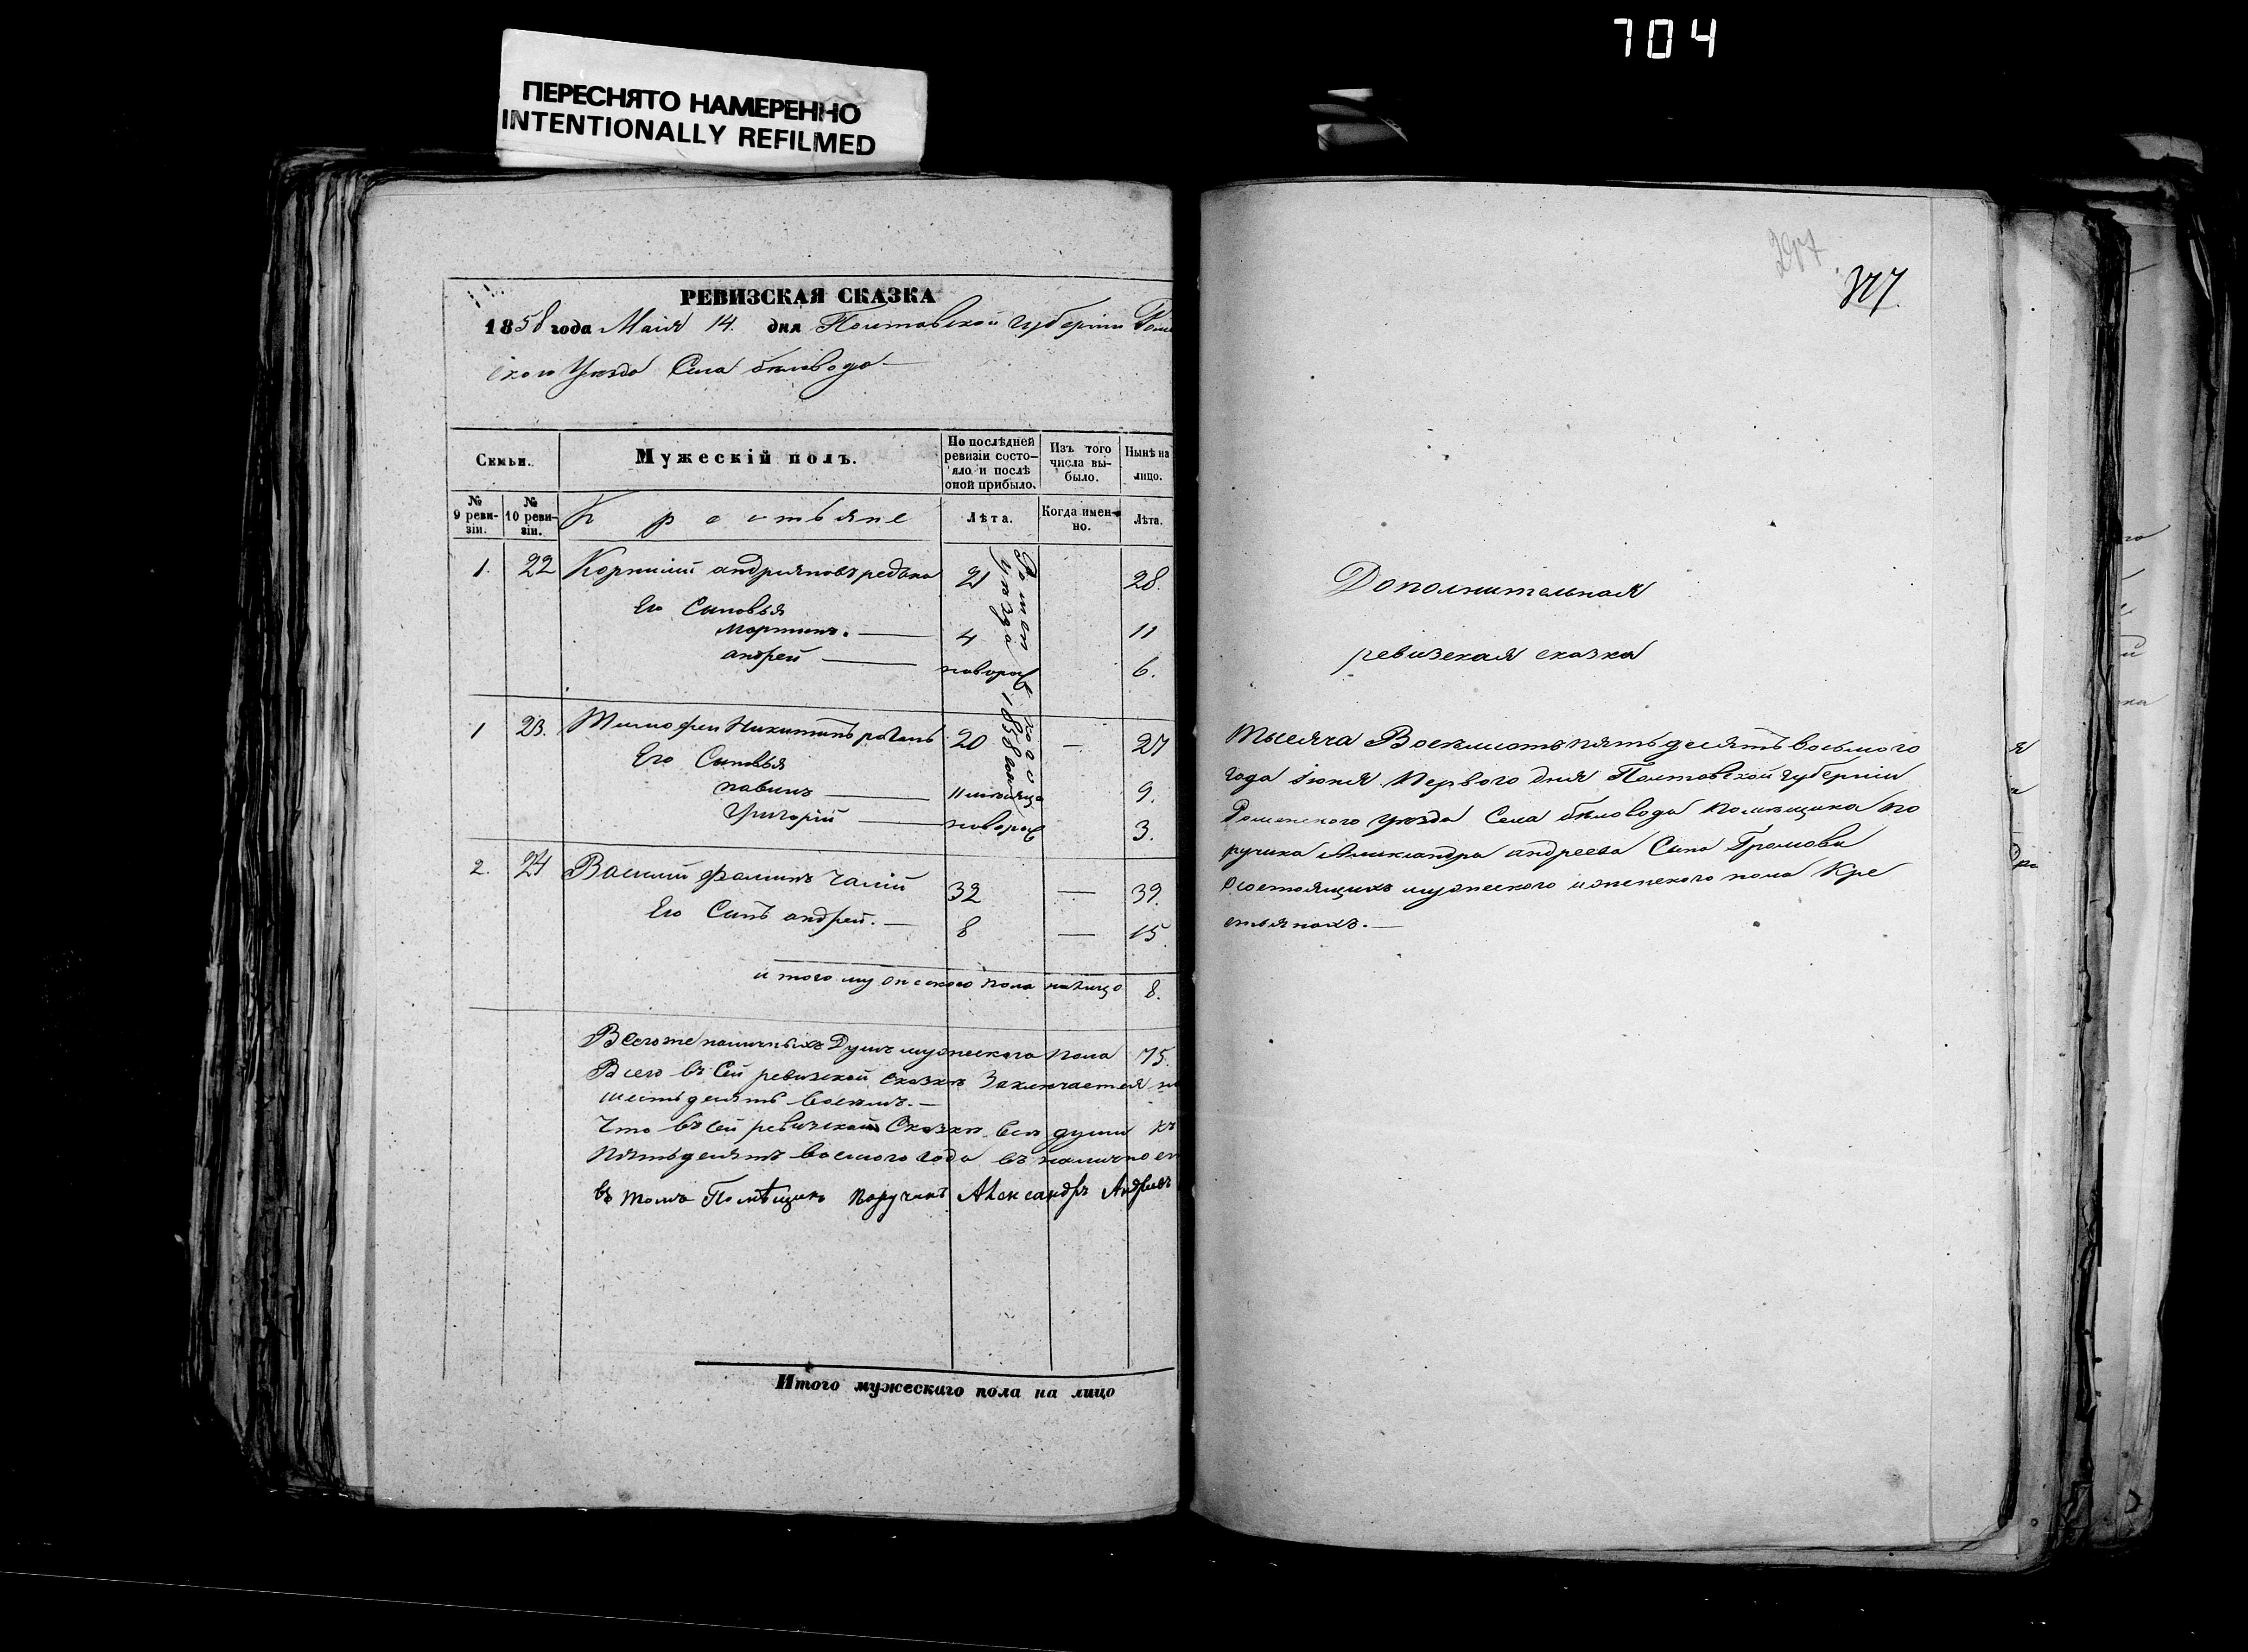 704
ПЕРЕСНЯТО НАМЕРЕННО
INTENTIONALLY REFILMED
РЕВИЗСКАЯ СКАЗКА
1858 года Маія 14. дня Полтавской губерніи Роме
ского Уезда Села беловода
Семьи.
Мужескій полъ.
По послѣдней ревизіи состояло и послѣ оной прибыло.
Изъ того числа выбыло.
Нынѣ на лицо.
№ 9 ревизіи.
№ 10 ревизіи.
Крестьяне
Лѣта.
Когда именно.
Лѣта.
1. 22 Корнилий андрияновъ редька 21 28.
Его Сыновья
мартинъ. — 4 11
андрей — новорож 6.
1 23. Тимофей Никитинъ 20 — 27
Его Сыновья
павилъ — 11 месяца 9.
Григорій — новорож 3.
2. 24 Василий фоминъ Чалий 32 — 39.
Его Сынъ андрей. — 8 — 15
итого мужеского пола налицо 8.
Всего же наличныхъ Душъ мужеского пола 75.
Всего въ Сей ревизской сказке Заключается
шестьдесятъ восемъ. —
Что въ сей ревизской Сказке все души къ
пятьдесятъ восмого года въ
въ томъ Помѣщикъ Поручикъ Александръ Андреевъ
Итого мужескаго пола на лицо
297
377.
Дополнительная
ревизская сказка
Тысяча Восемсотъ пятьдесятъ восьмого
года іюня Первого дня Полтавской губерніи
Роменского уезда Села беловода помещика по
ручика Александра андреева Сына Громова
состоящихъ мужеского и женского пола Кре
стьянахъ. —